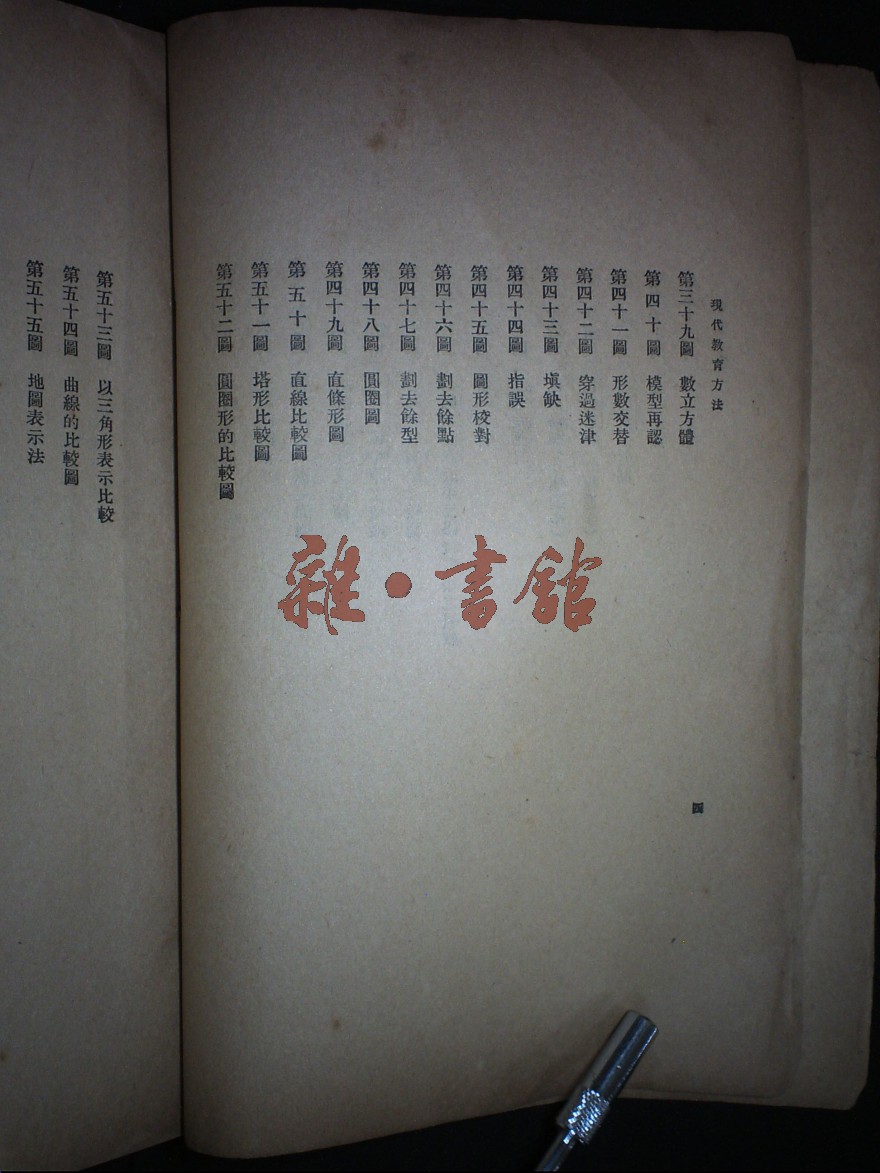 現代教育方法
第三十九圖 數立方體
第四十圖 模型再認
第四十一圖 形數交替
第四十二圖 穿過迷津
第四十三圖 填缺
第四十四圖 指誤
第四十五圖 圖形校對
第四十六圖 劃去餘點
第四十七圖 劃去餘型
第四十八圖 圓圈圖
第四十九圖 直條形圖
第五十圖 直線比較圖
第五十一圖 塔形比較圖
第五十二圖 圓圈形的比較圖
四
第五十三圖 以三角形表示比較
第五十四圖 曲線的比較圖
第五十五圖 地圖表示法
雜·書館